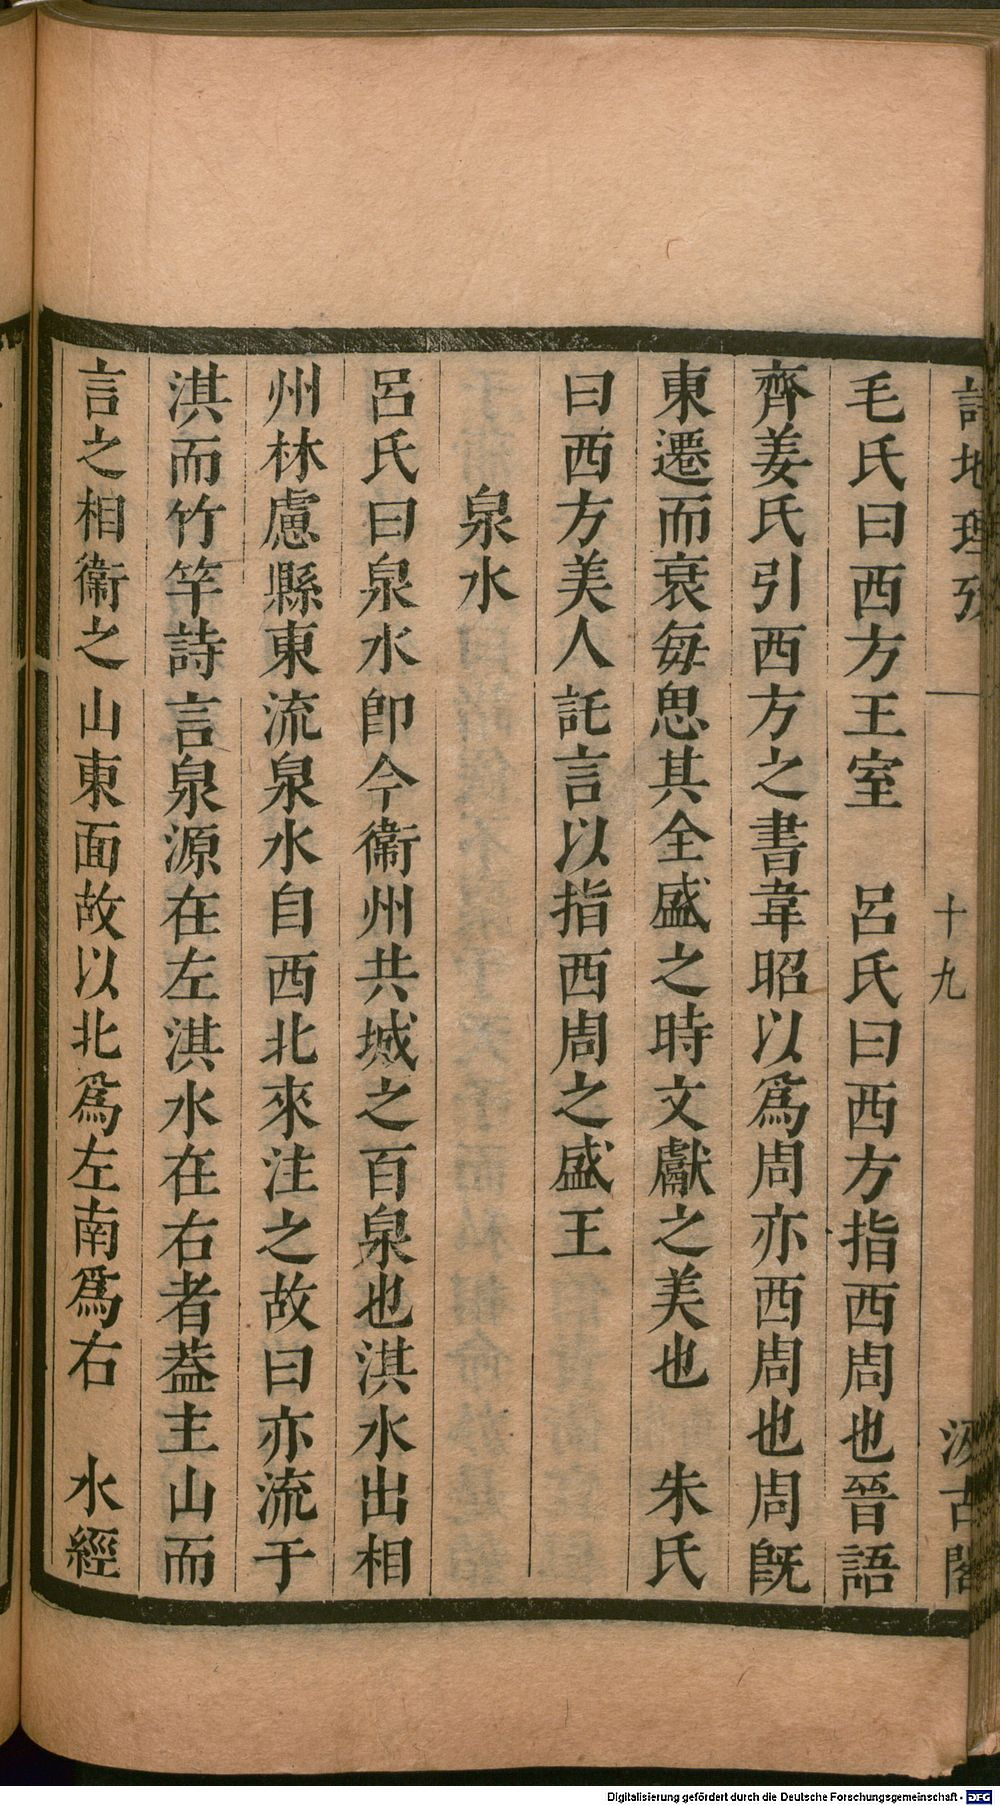 詩地理攷
十九
汲古閣
毛氏曰西方王室　呂氏曰西方指西周也晉語
齊姜氏引西方之書韋昭以爲周亦西周也周旣
東遷而衰每思其全盛之時文獻之美也　朱氏
曰西方美人託言以指西周之盛王
泉水
呂氏曰泉水卽今衞州共城之百泉也淇水出相
州林慮縣東流泉水自西北來注之故曰亦流于
淇而竹竿詩言泉源在左淇水在右者葢主山而
言之相衞之山東面故以北爲左南爲右　水經
Digitalisierung gefördert durch die Deutsche Forschungsgemeinschaft - DFG